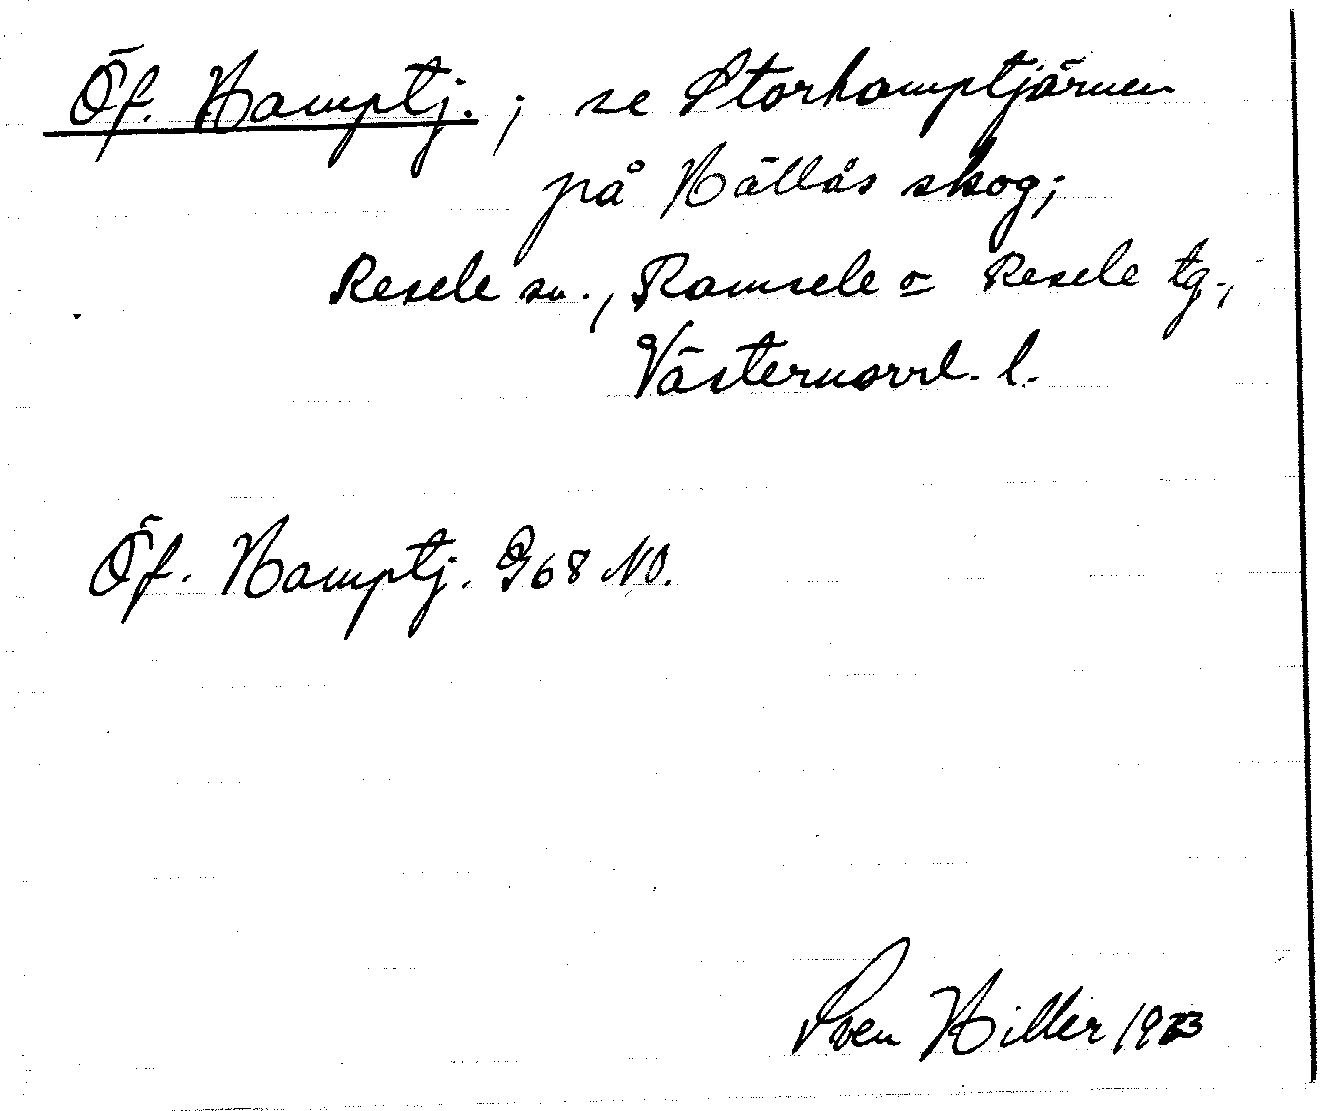 Öf. Hamptj.; se Storhamptjärnen
på Hällås skog;
Resele sn., Ramsele o Resele tg.,
Västernorrl. l.
Öf. Hamptj. G68 NO.
Sven Hiller